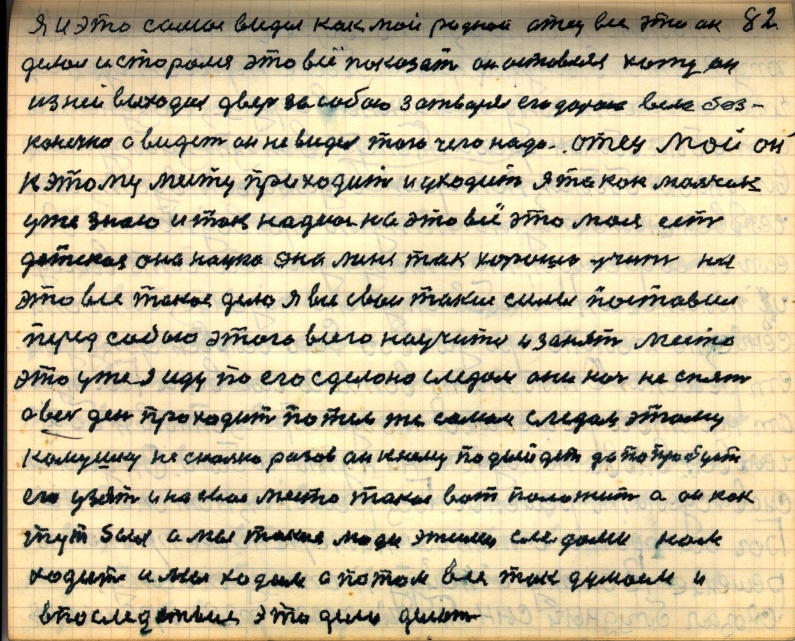 я и это самое видел как мой родной отец все это он 82.
делал и стораля это всё показат он оставлял хату он
из ней выходил двер за собою затварял его дорога вела без-
конечно а видет он не видел того чего надо. отец мой он
к этому месту приходит и уходит я та как малчик
уже знаю и так надиялся на это всё это моя ест
детская она наука она меня так хорошо учит на
это все такое дело я все свои такие силы поставил
перед собою этого всего научится и занят место
это уже я иду по его сделоно следам они ноч не спят
а вес ден проходит по тем же самым следам этому
камушку несколко разов он к нему подыйдет да попробует
его узят и на свое место такое вот положит а он как
тут был а мы такие люди этими следами нам
ходит и мы ходим а потом все так думаем и
впоследствия это дело делат